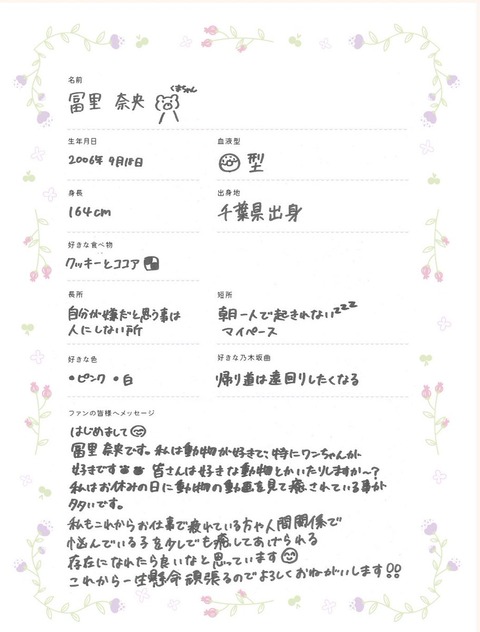 名前
冨里 奈央 くまちゃん
生年月日 血液型
2006年 9月18日 型
身長 出身地
164cm 千葉県出身
好きな食べ物
クッキーとココア
長所 短所
自分が嫌だと思う事は 朝一人で起きれないzzz
人にしない所 マイペース
好きな色 好きな乃木坂曲
・ピンク ・白 帰り道は遠回りしたくなる
ファンの皆様へメッセージ
はじめまして
冨里 奈央です。私は動物が好きで、特にワンちゃんが
好きです 皆さんは好きな動物とかいたりしますか〜?
私はお休みの日に動物の動画を見て癒されている事が
多いです。
私もこれからお仕事で疲れている方や人間関係で
悩んでいる子を少しでも癒してあげられる
存在になれたら良いなと思っています
これから一生懸命頑張るのでよろしくおねがいします!!